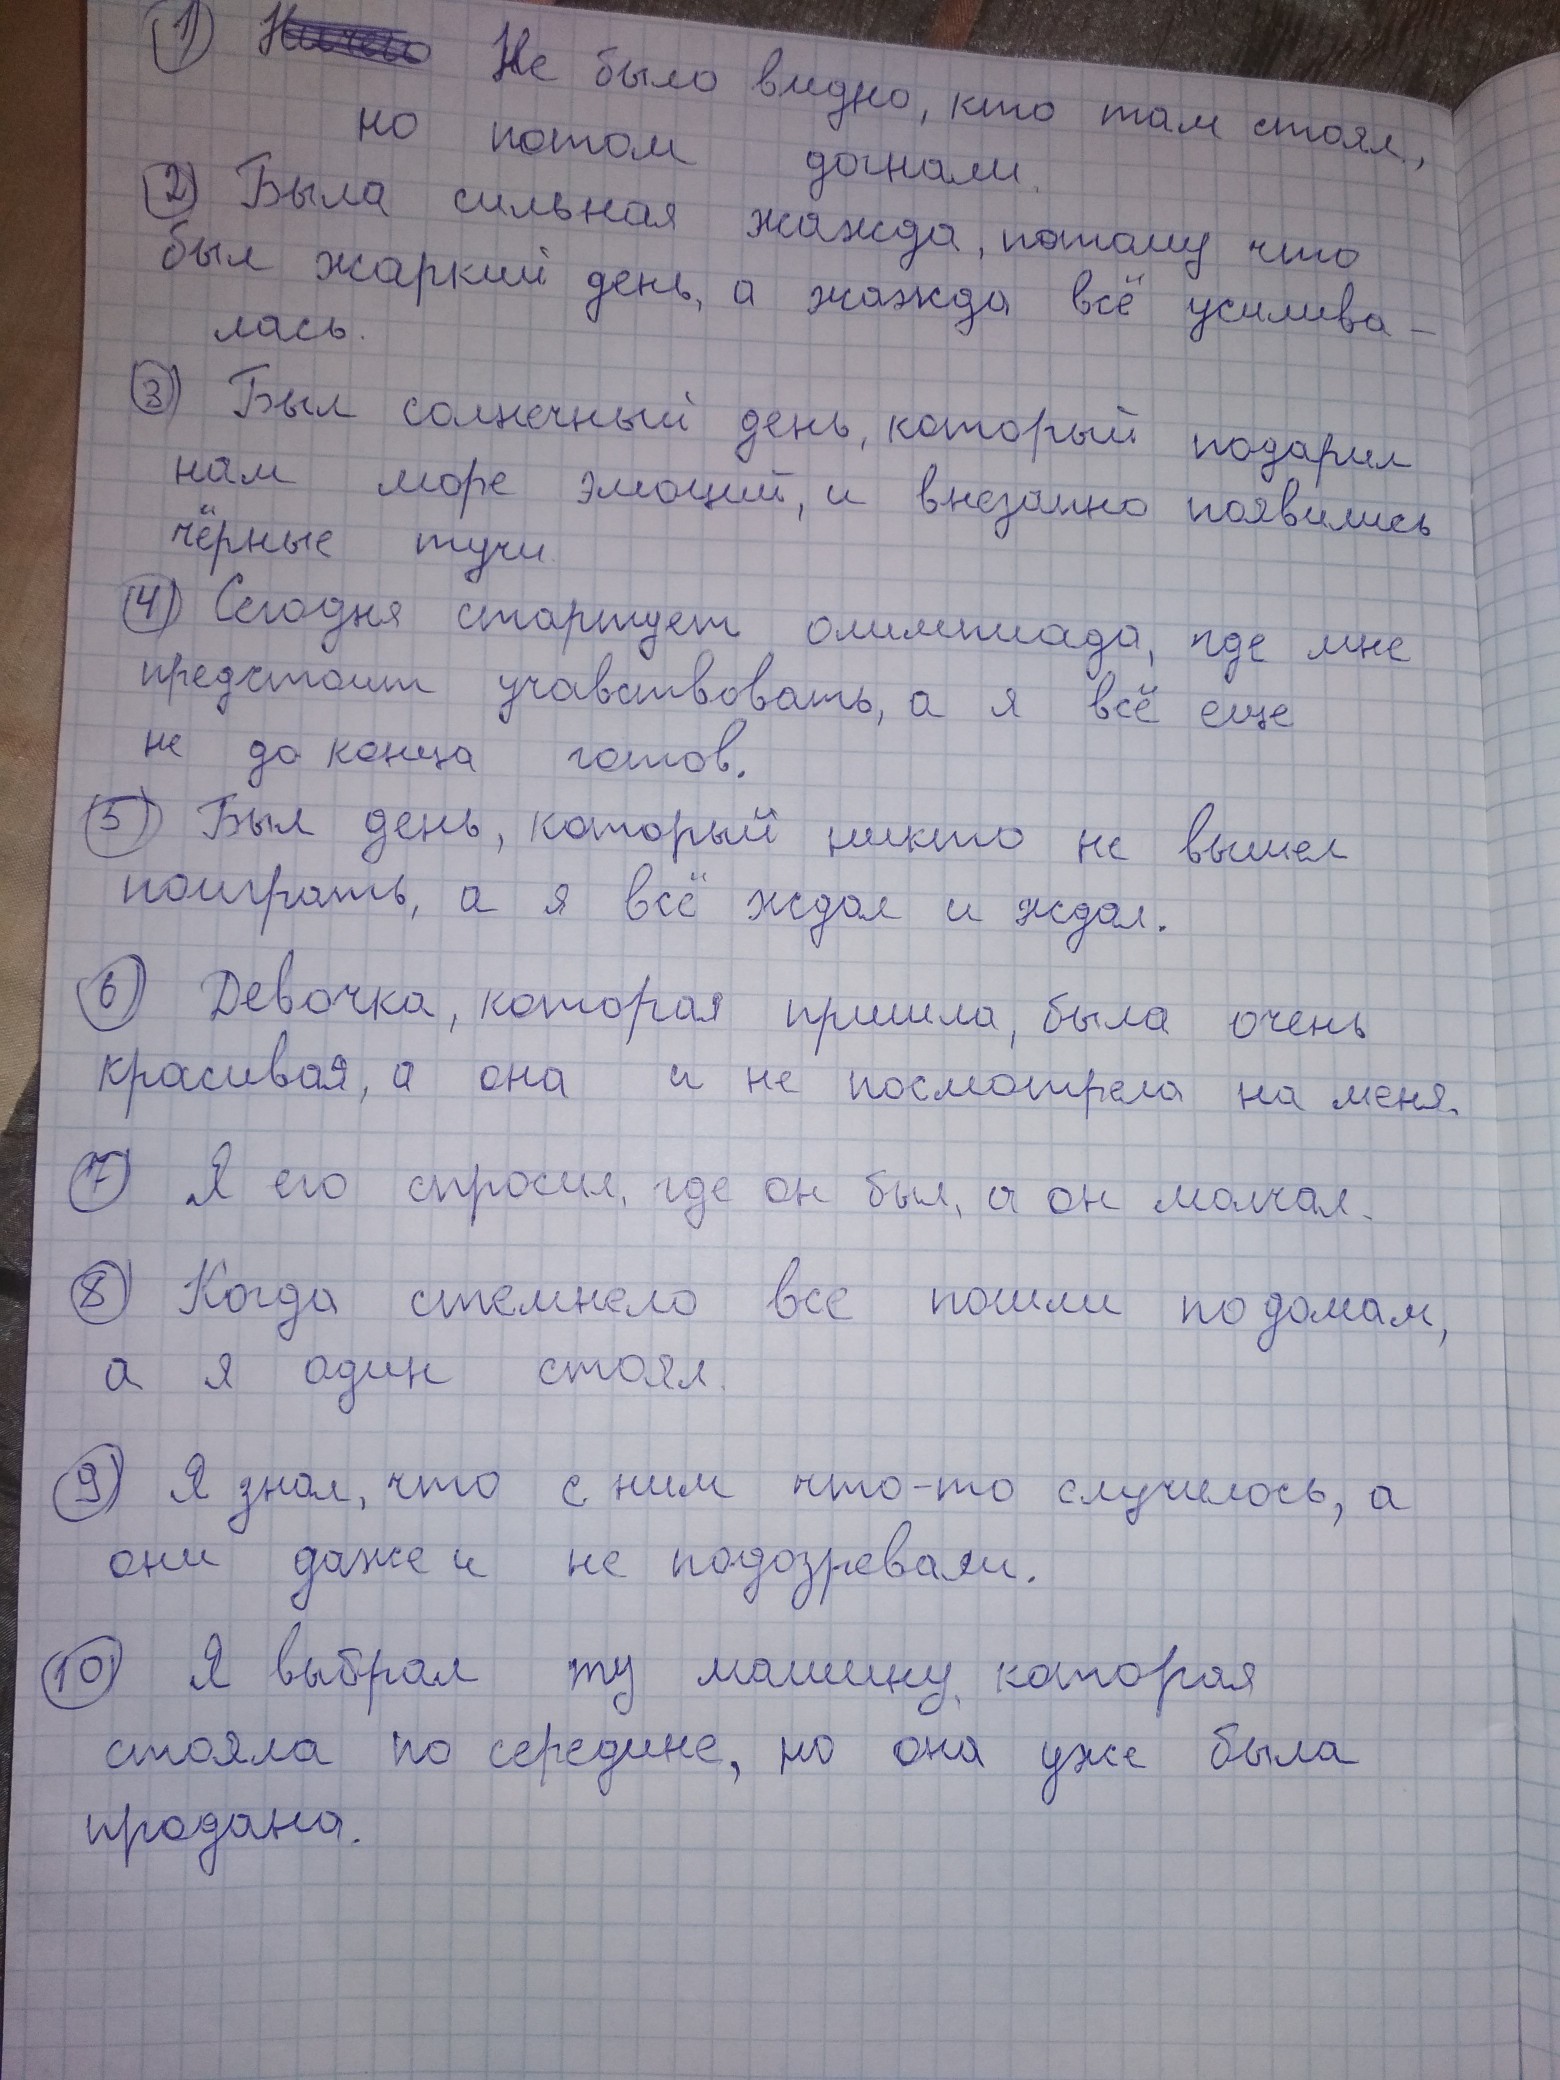 1) Не было видно, кто там стоял,
но потом догнали.
2) Была сильная жажда, потому что
был жаркий день, а жажда всё усилива-
лась.
3) Был солнечный день, который подарил
нам море эмоций, и внезапно появились
чёрные тучи.
4) Сегодня стартует олимпиада, где мне
предстоит учавствовать, а я всё еще
не до конца готов.
5) Был день, который никто не вышел
поиграть, а я всё ждал и ждал.
6) Девочка, которая пришла, была очень
красивая, а она и не посмотрела на меня.
7) Я его спросил, где он был, а он молчал.
8) Когда стемнело все пошли по домам,
а я один стоял.
9) Я знал, что с ним что-то случилось, а
они даже и не подозревали.
10) Я выбрал ту машину, которая
стояла по середине, но она уже была
продана.